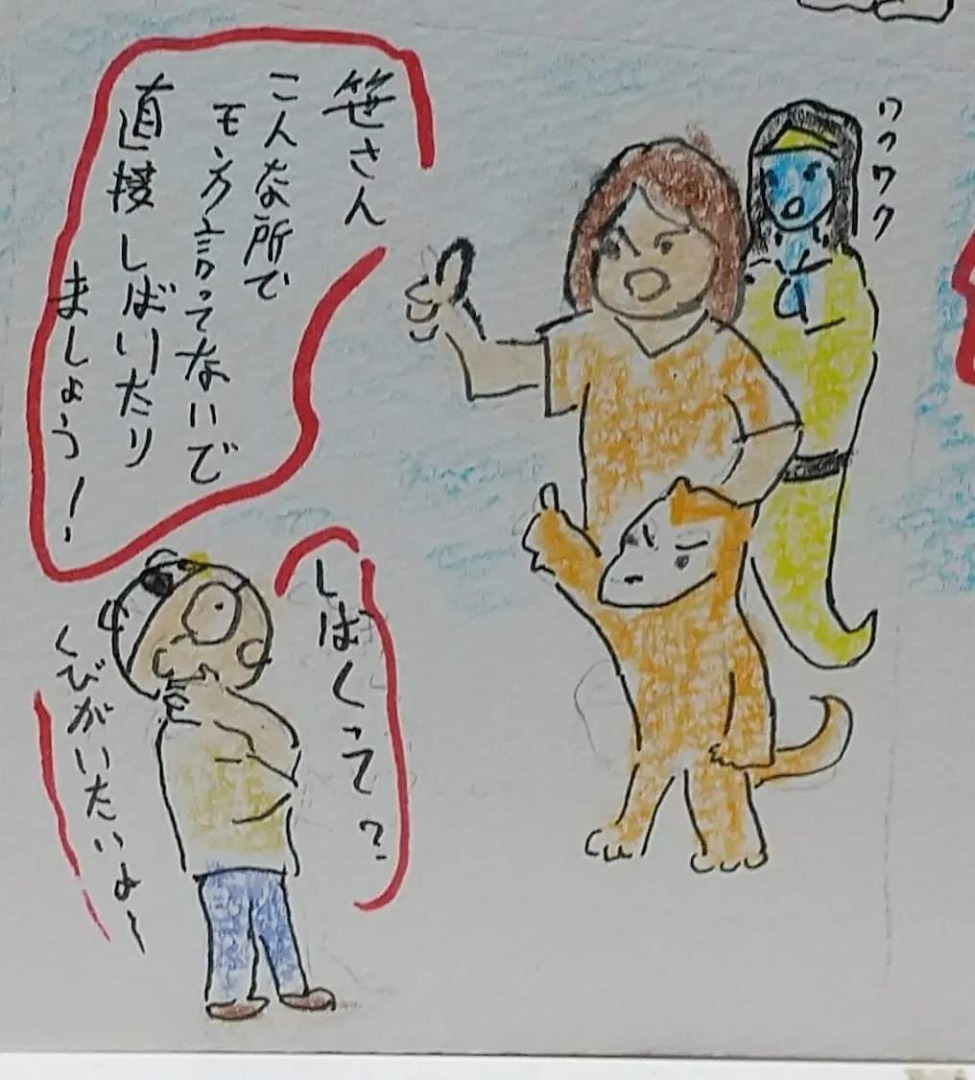 ワクワク
笹さん
こんな所で
モンク言ってないで
直接しばいたり
ましょう!
しばくって?
くびがいたいよ〜